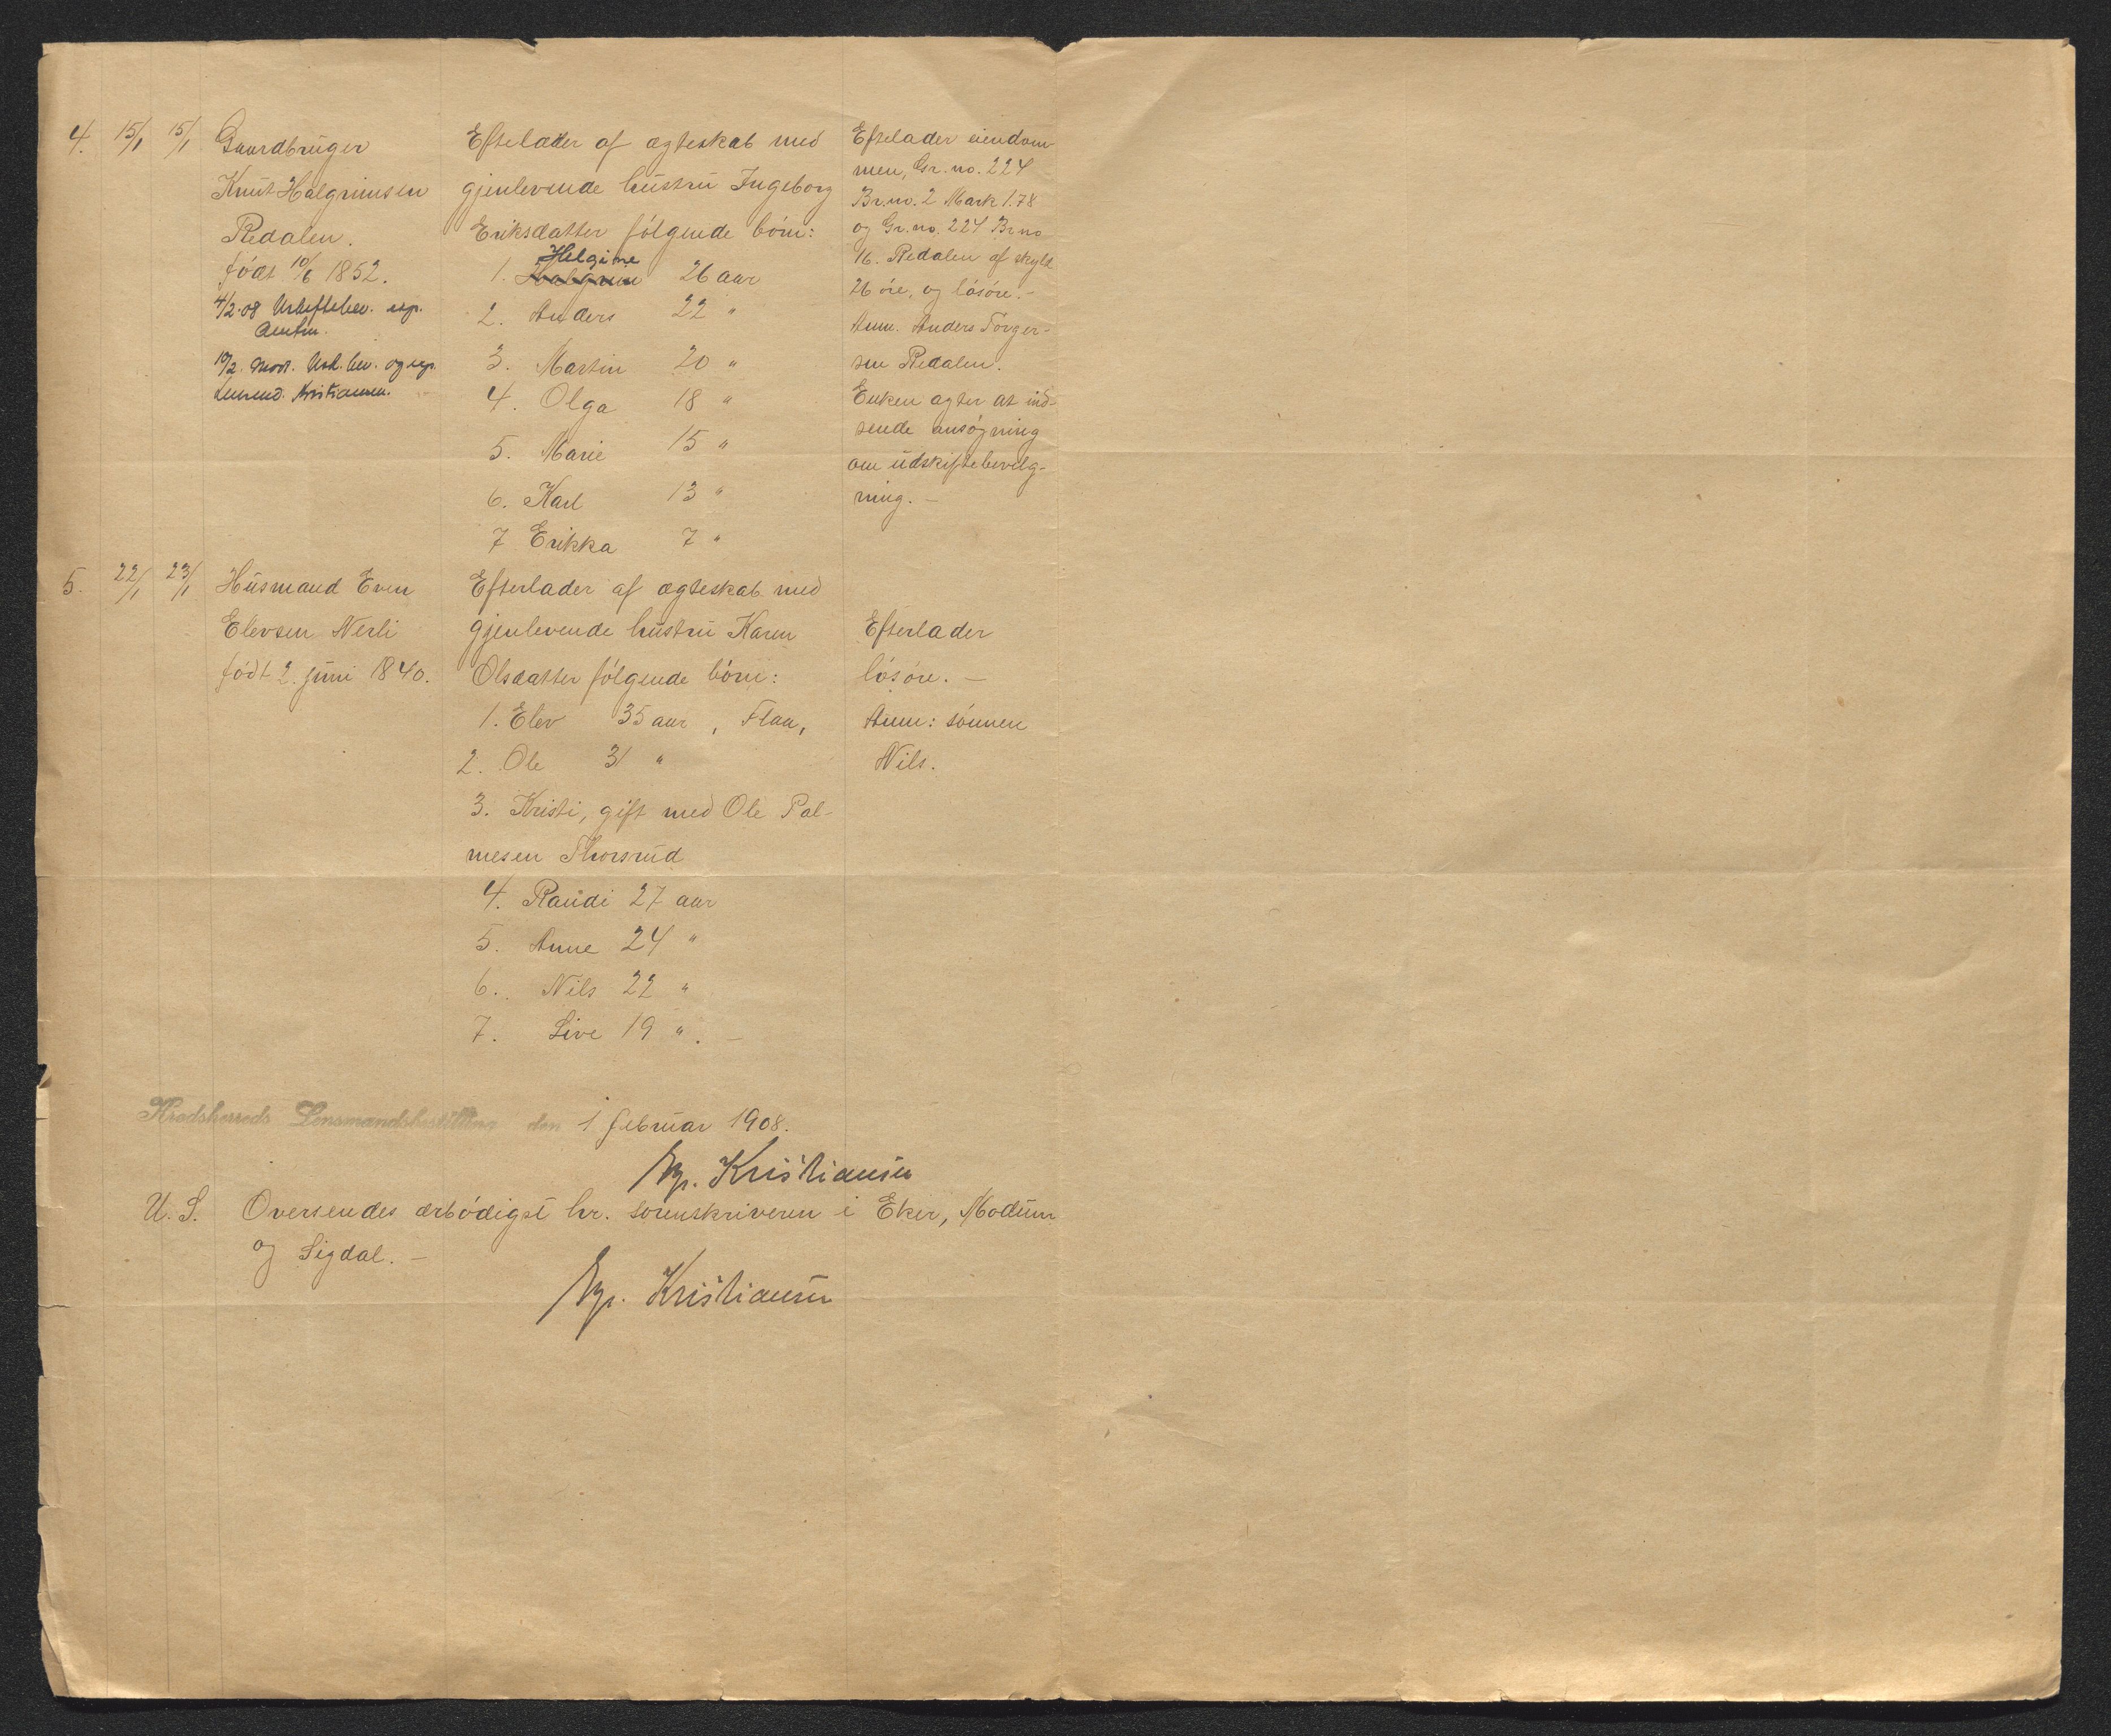 4. 15/1 15/1 Gaardbruger
Knut Halgrimsen
Redalen.
født 10/6 1852.
4/2.08 Uskiftebev. exp.
Amtm.
10/2. mod. Usk. bev. og exp.
Lensmd. Kristiansen.
Eftelader af ægteskab med
gjenlevende hustru Ingeborg
Eriksdatter følgende børn:
Helgine
1. 26 aar
2. Anders 22 "
3. Martin 20 "
4. Olga 18 "
5. Marie 15 "
6. Karl 13 "
7 Erikka 7 "
Eftelader eiendom-
men, Gr. no. 224
Br. no. 2 Mark 1.78
og Gr. no. 224 Br no
16. Redalen af skyld
26 øre, og løsøre. -
Anm. Anders Torger-
sen Redalen.
Enken agter at ind-
sende ansøgning
om udskiftebevilg-
ning. -
5. 22/1 23/1 Husmand Even
Elevsen Nerli
født 2. juni 1840.
Efterlader af ægteskab med
gjenlevende hustru Karen
Olsdatter følgende børn:
1. Elev 35 aar, Flaa,
2. Ole 31 "
3. Kristi, gift med Ole Pal-
mesen Thorsrud
4. Randi 27 aar
5. Anne 24 "
6. Nils 22 "
7. Live 19 ". -
Efterlader
løsøre. -
Anm: sønnen
Nils.
Krødsherreds Lensmandsbestilling den 1 februar 1908.
Kristiansen
U. S. Oversendes ærbødigst hr. sorenskriveren i Eker, Modum
og Sigdal. -
Kristiansen